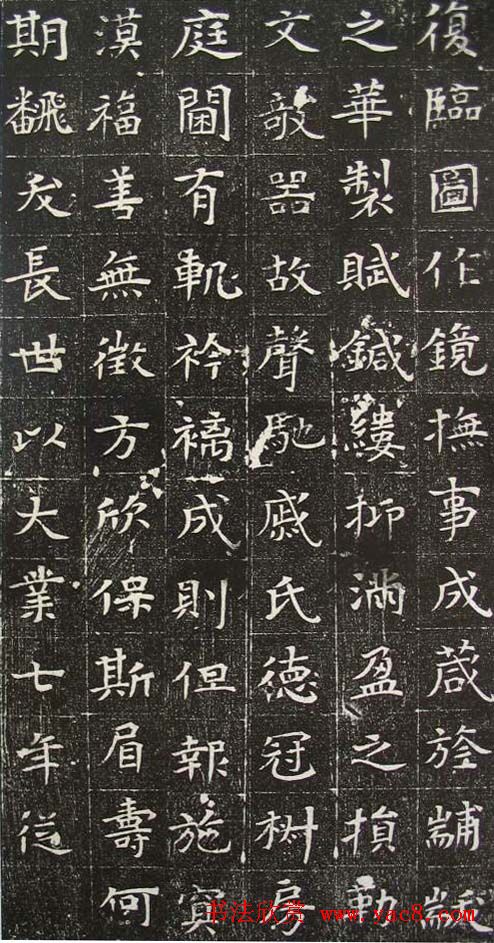 復臨圖作鏡撫事成葴旍黼黻
之華製賦鍼縷抑滿盈之損勤
文敧器故聲馳戚氏德冠椒房
庭閫有軌衿褵成則但報施冥
漠福善無徵方欣保斯眉壽何
期飜夭長世以大業七年從
书法欣赏 www.yac8.com